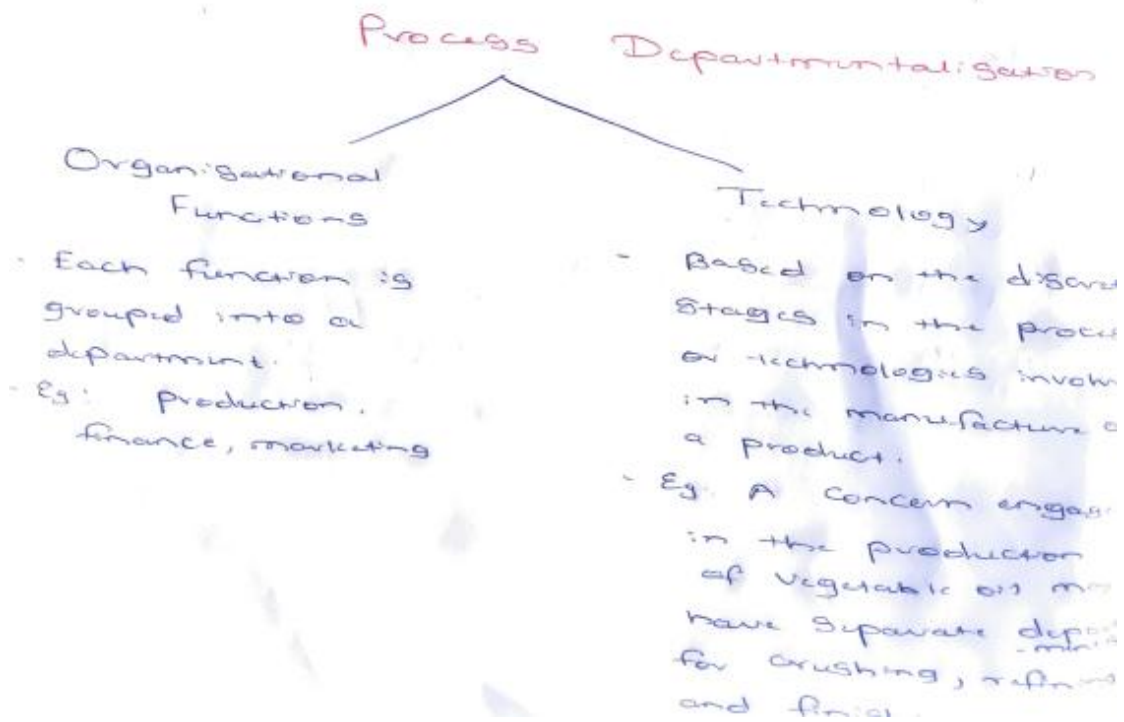 Process Departmentalisation
Organisational
Functions
- Each function is
grouped into a
department.
- Eg: production,
finance, marketing
Technology
- Based on the
stages in the
or technologies
in the manufacture
a product.
- Eg. A concern
in the production
of vegetable oil
have separate
for crushing,
and